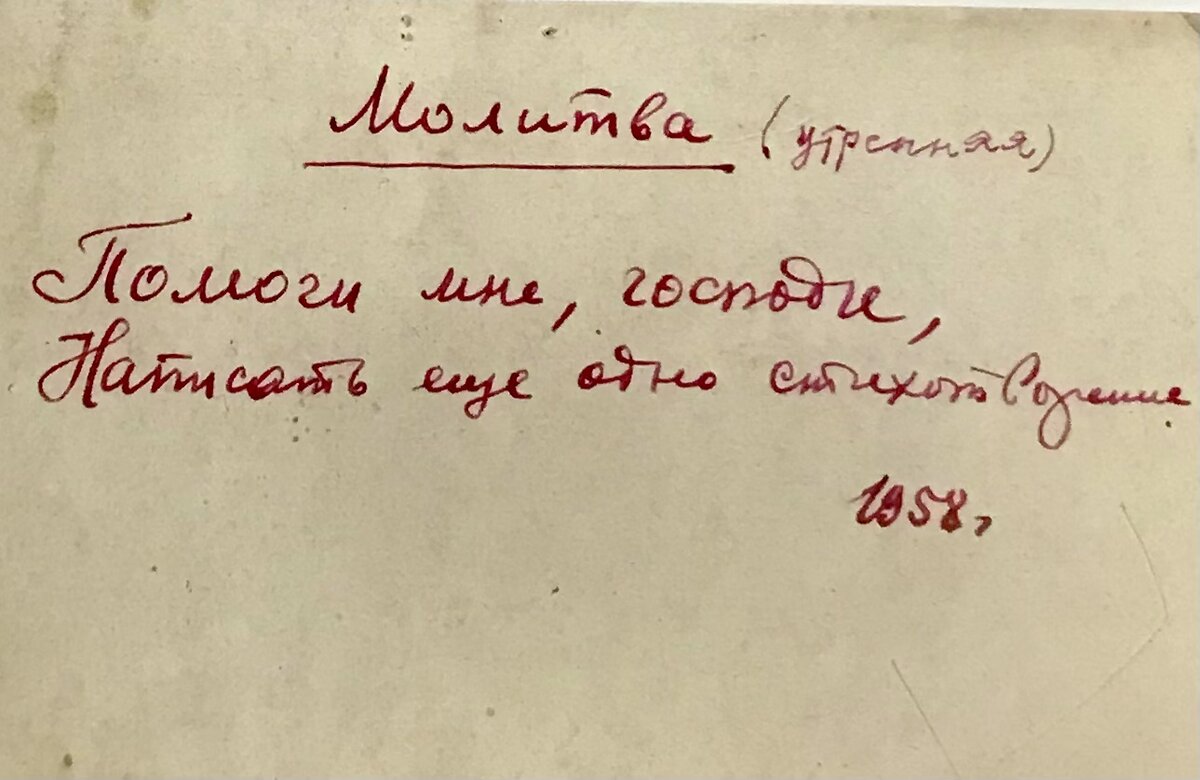 Молитва (утренняя)
Помоги мне, господи,
Написать еще одно стихотворение
1958.